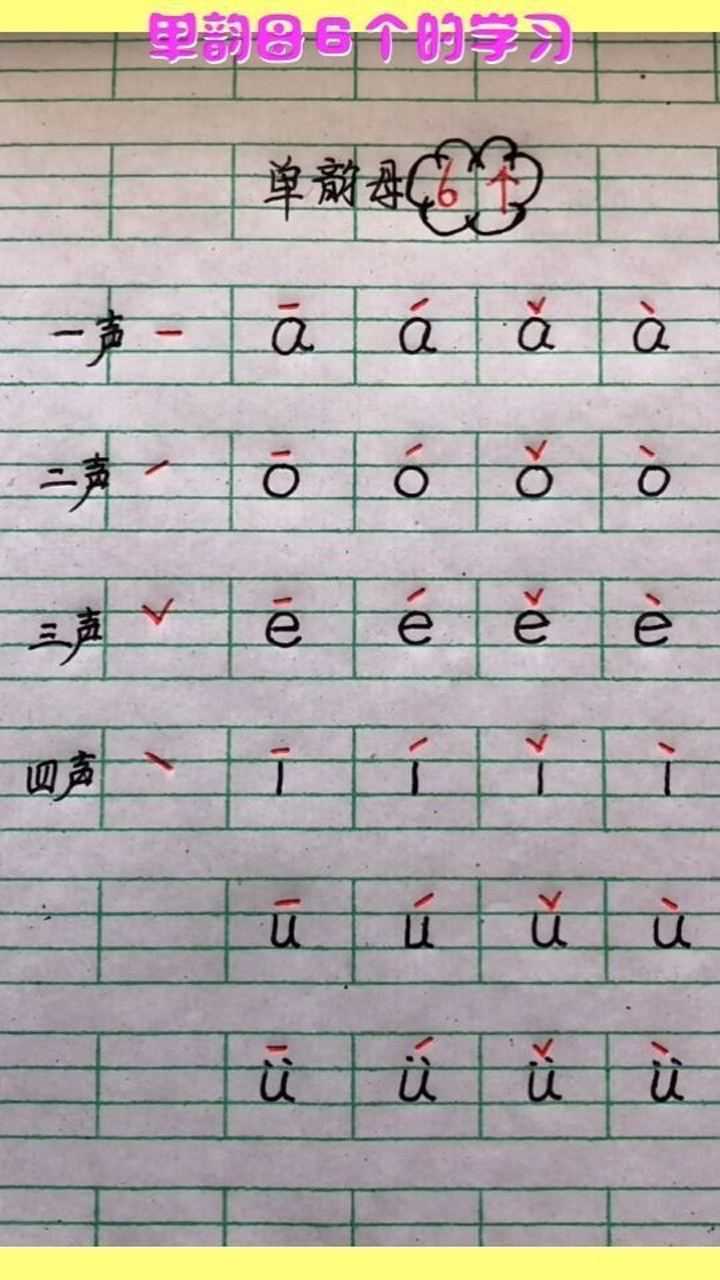 单韵母6个的学习
单韵母6个
一声 ˉ ā á ǎ à
二声 ˊ ō ó ǒ ò
三声 ˇ ē é ě è
四声 ˋ ī í ǐ ì
ū ú ǔ ù
ǖ ǘ ǚ ǜ